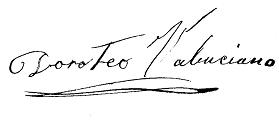 Doroteo Valenciano